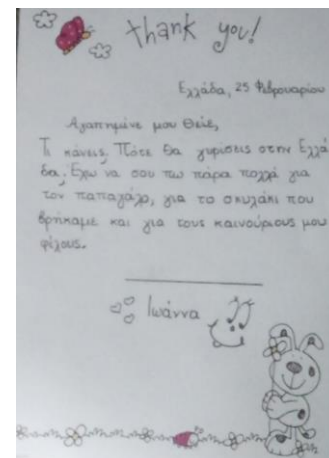 thank you!
Ελλάδα, 25 Φεβρουαρίου
Αγαπημένε μου Θείε,
Τι κάνεις; Πότε θα γυρίσεις στην Ελλά
δα; Έχω να σου πω πάρα πολλά για
τον παπαγάλο, για το σκυλάκι που
βρήκαμε και για τους καινούριους μου
φίλους.
Ιωάννα